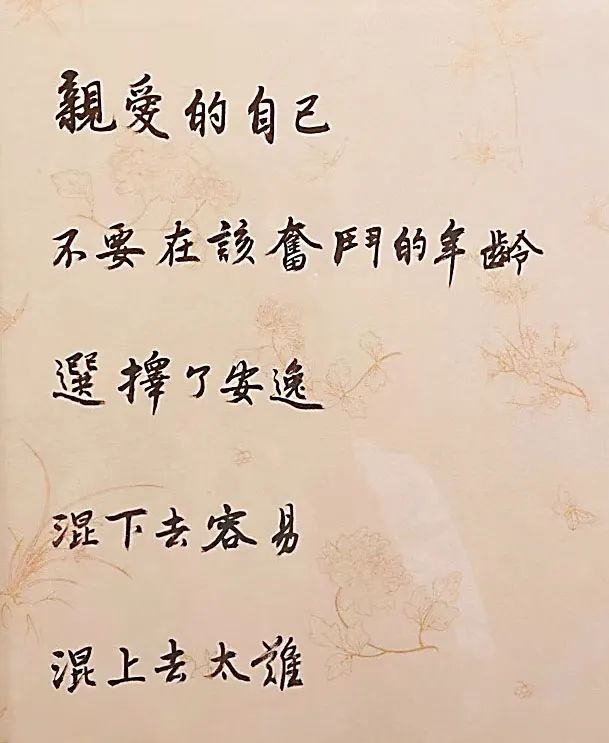 親愛的自己
不要在該奮鬥的年齡
選擇了安逸
混下去容易
混上去太難